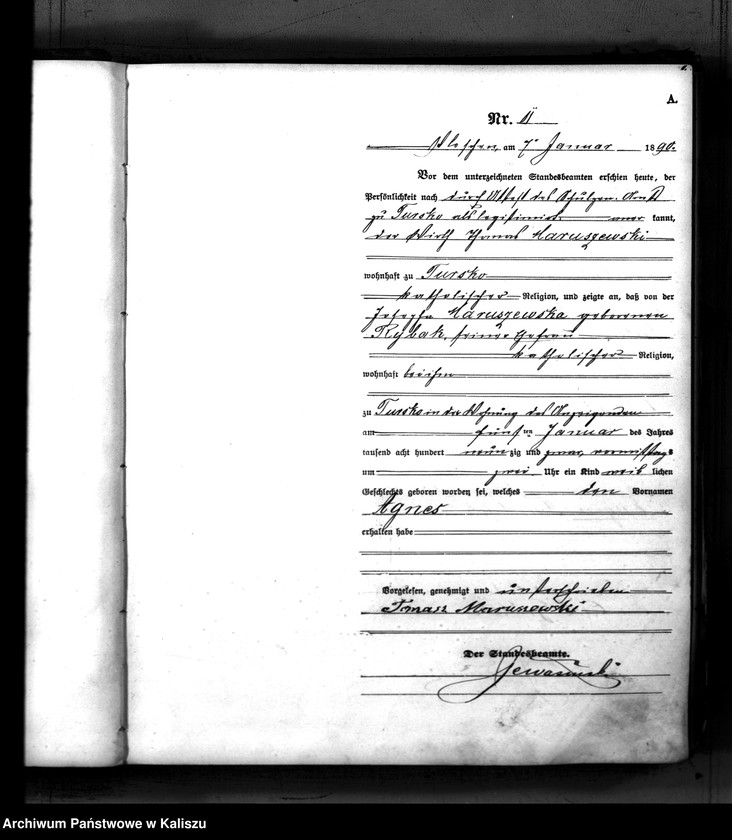 A.
Nr. 11
Pleschen, am 7. Januar 1890.
Vor dem unterzeichneten Standesbeamten erschien heute, der
Persönlichkeit nach durch Attest des Schulzen-Amts
zu Tursko als legitimirt aner kannt,
der Wirth Thomas Maruszewski
wohnhaft zu Tursko
katholischer Religion, und zeigte an, daß von der
Josepha Maruszewska geborenen
Rybak, seiner Ehefrau
katholischer Religion,
wohnhaft bei ihm
zu Tursko in der Wohnung des Anzeigenden
am fünften Januar des Jahres
tausend acht hundert neunzig und zwar vormittags
um zwei Uhr ein Kind weib lichen
Geschlechts geboren worden sei, welches den Vornamen
Agnes
erhalten habe
Vorgelesen, genehmigt und unterschrieben
Tomasz Maruszewski
Der Standesbeamte.
Archiwum Państwowe w Kaliszu